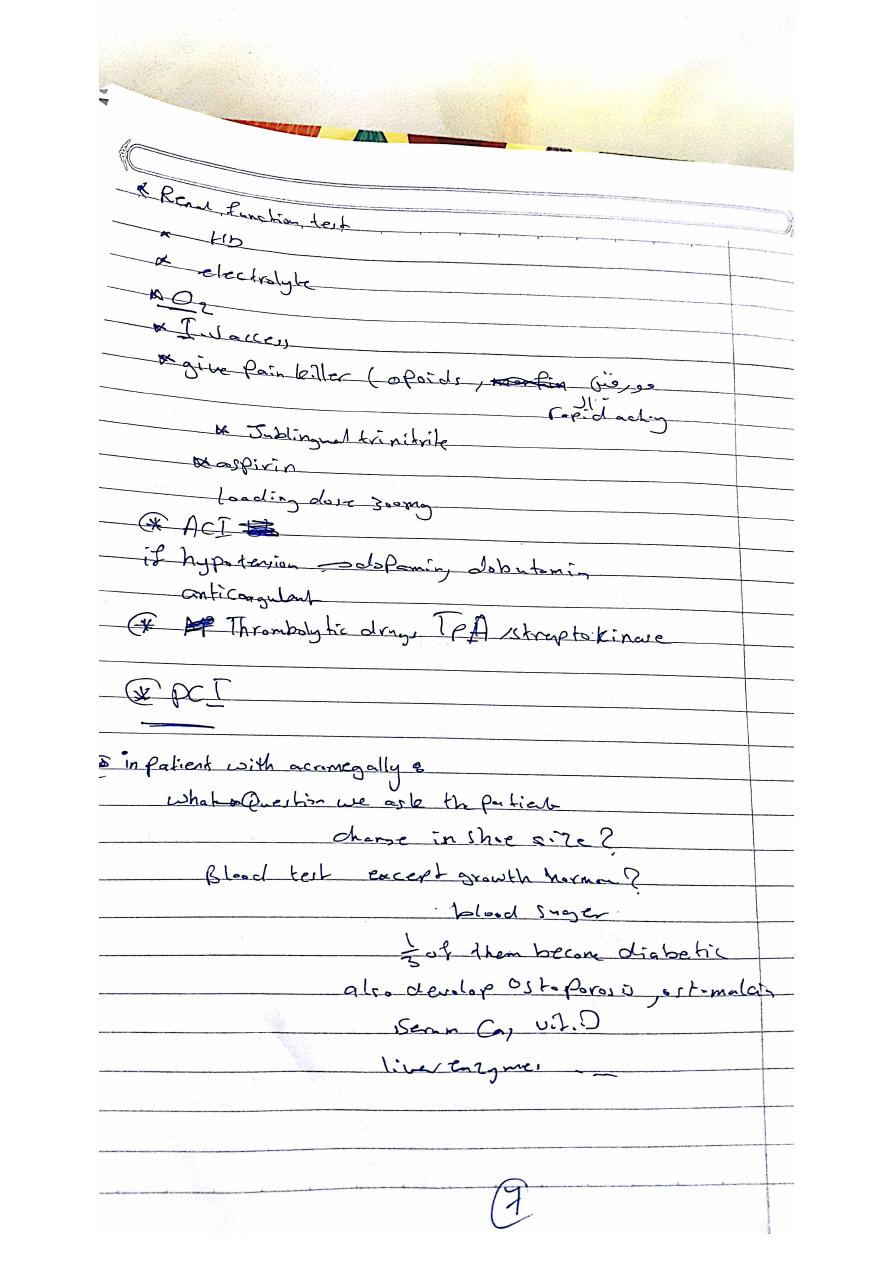 * Renal, function, test
* Hb
* electrolyte
* O2
* I.V access
* give Pain killer ( opoids, مورفين
الـ rapid acting
* Sublingual trinitrile
* aspirin
Loading dose 300mg
* ACI
if hypotension → dopamin, dobutamin
anticoagulant
* Thrombolytic drugs TPA /streptokinase
* PCI
in patient with acromegally :
what Question we ask the patient
change in shoe size ?
Blood test except growth hormon ?
blood suger
1/3 of them become diabetic
also develop Ostoporosis, ostomalcia
Serum Ca, vit.D
liver enzymes
7